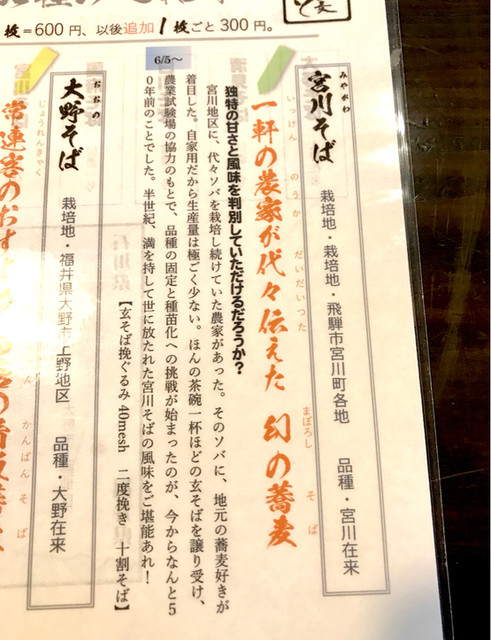 枚=600円、以後追加1枚ごと300円。
宮川そば
みやがわ
栽培地・栽培地・飛騨市宮川町各地 品種・宮川在来
一軒の農家が代々伝えた 幻の蕎麦
いっけん のうか だいだいつた まぼろし そば
独特の甘さと風味を判別していただけるだろうか?
宮川地区に、代々ソバを栽培し続けていた農家があった。そのソバに、地元の蕎麦好きが
着目した。自家用だから生産量は極ごく少ない。ほんの茶碗一杯ほどの玄そばを譲り受け、
農業試験場の協力のもとで、品種の固定と種苗化への挑戦が始まったのが、今からなんと5
0年前のことでした。半世紀、満を持して世に放たれた宮川そばの風味をご堪能あれ!
【玄そば挽ぐるみ 40mesh 二度挽き 十割そば】
6/5〜
大野そば
おおの
栽培地・福井県大野市上野地区 品種・大野在来
常連客のおす
じょうれんきゃく
かんばんそば